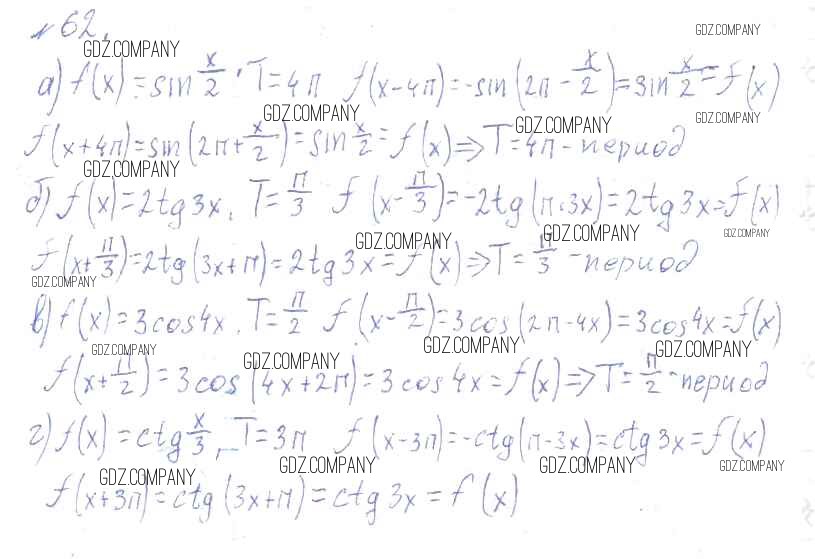 №62.
GDZ.COMPANY GDZ.COMPANY
а) f(x) = sin x/2, T=4π f(x-4π)=-sin(2π - x/2)=sin x/2 = f(x)
GDZ.COMPANY GDZ.COMPANY GDZ.COMPANY
f(x+4π)=sin(2π+x/2)=sin x/2 = f(x)⇒T=4π - период
GDZ.COMPANY
б) f(x)=2tg3x, T=π/3 f(x-π/3)=-2tg(π-3x)=2tg3x=f(x)
GDZ.COMPANY GDZ.COMPANY GDZ.COMPANY
f(x+π/3)=2tg(3x+π)=2tg3x=f(x)⇒T=π/3 - период
GDZ.COMPANY
в) f(x)=3cos4x, T=π/2 f(x-π/2)=3cos(2π-4x)=3cos4x=f(x)
GDZ.COMPANY GDZ.COMPANY GDZ.COMPANY GDZ.COMPANY
f(x+π/2)=3cos(4x+2π)=3cos4x=f(x)⇒T=π/2 - период
г) f(x)=ctg x/3, T=3π f(x-3π)=-ctg(π-3x)=ctg3x=f(x)
GDZ.COMPANY GDZ.COMPANY GDZ.COMPANY GDZ.COMPANY
f(x+3π)=ctg(3x+π)=ctg3x=f(x)